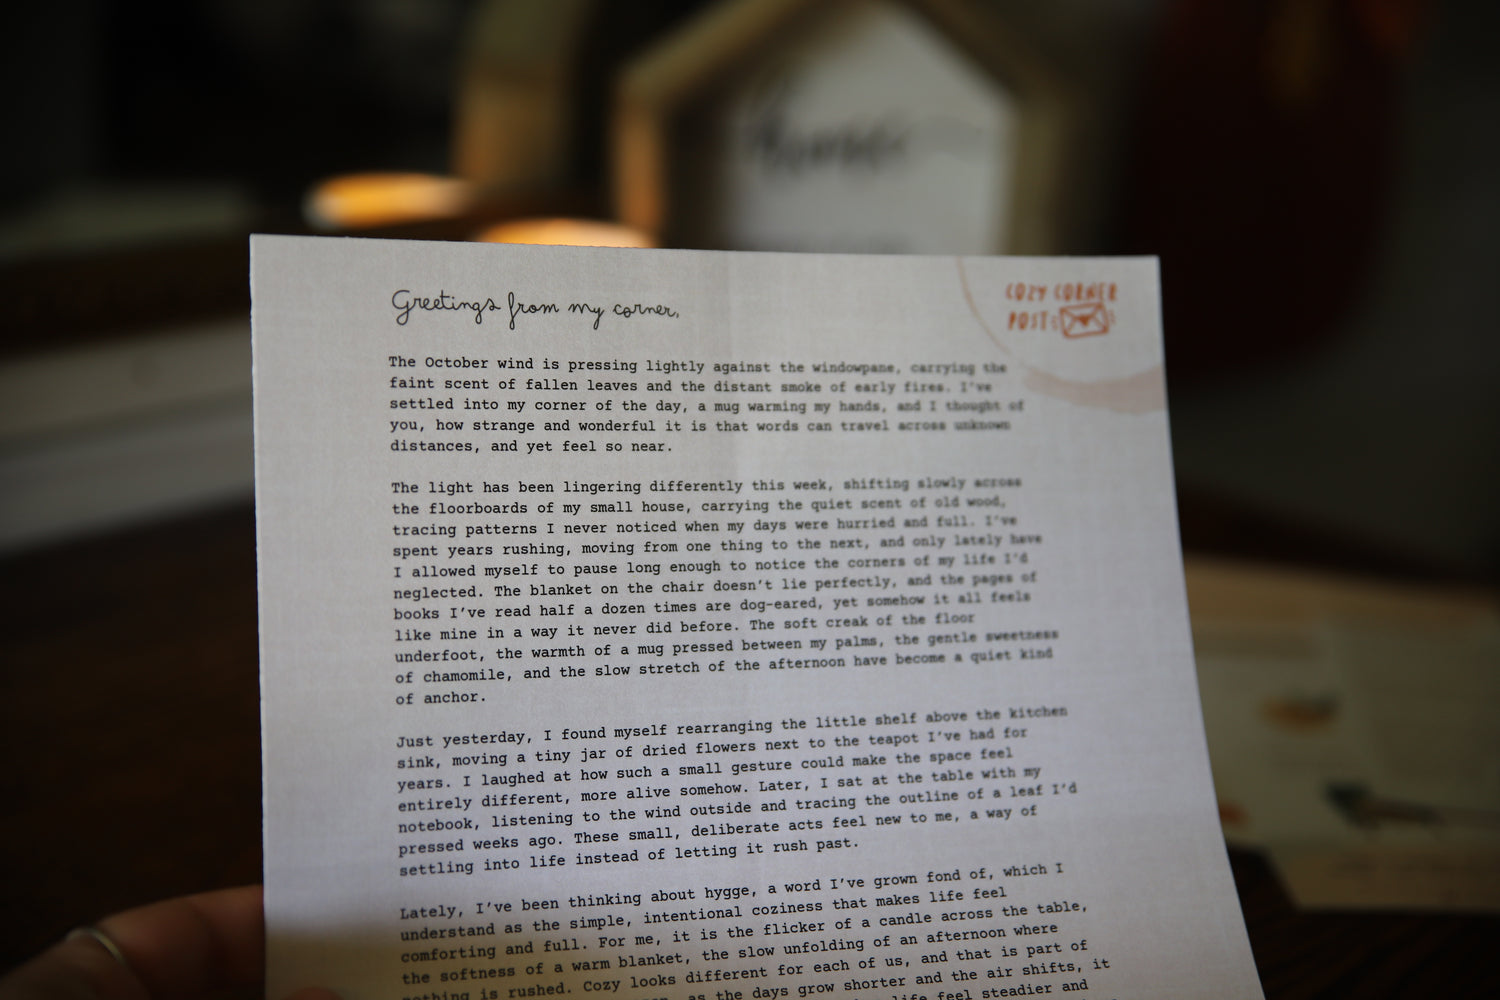 Greetings from my corner,
COZY CORNER
POST
The October wind is pressing lightly against the windowpane, carrying the
faint scent of fallen leaves and the distant smoke of early fires. I've
settled into my corner of the day, a mug warming my hands, and I thought of
you, how strange and wonderful it is that words can travel across unknown
distances, and yet feel so near.
The light has been lingering differently this week, shifting slowly across
the floorboards of my small house, carrying the quiet scent of old wood,
tracing patterns I never noticed when my days were hurried and full. I've
spent years rushing, moving from one thing to the next, and only lately have
I allowed myself to pause long enough to notice the corners of my life I'd
neglected. The blanket on the chair doesn't lie perfectly, and the pages of
books I've read half a dozen times are dog-eared, yet somehow it all feels
like mine in a way it never did before. The soft creak of the floor
underfoot, the warmth of a mug pressed between my palms, the gentle sweetness
of chamomile, and the slow stretch of the afternoon have become a quiet kind
of anchor.
Just yesterday, I found myself rearranging the little shelf above the kitchen
sink, moving a tiny jar of dried flowers next to the teapot I've had for
years. I laughed at how such a small gesture could make the space feel
entirely different, more alive somehow. Later, I sat at the table with my
notebook, listening to the wind outside and tracing the outline of a leaf I'd
pressed weeks ago. These small, deliberate acts feel new to me, a way of
settling into life instead of letting it rush past.
Lately, I've been thinking about hygge, a word I've grown fond of, which I
understand as the simple, intentional coziness that makes life feel
comforting and full. For me, it is the flicker of a candle across the table,
the softness of a warm blanket, the slow unfolding of an afternoon where
nothing is rushed. Cozy looks different for each of us, and that is part of
as the days grow shorter and the air shifts, it
life feel steadier and